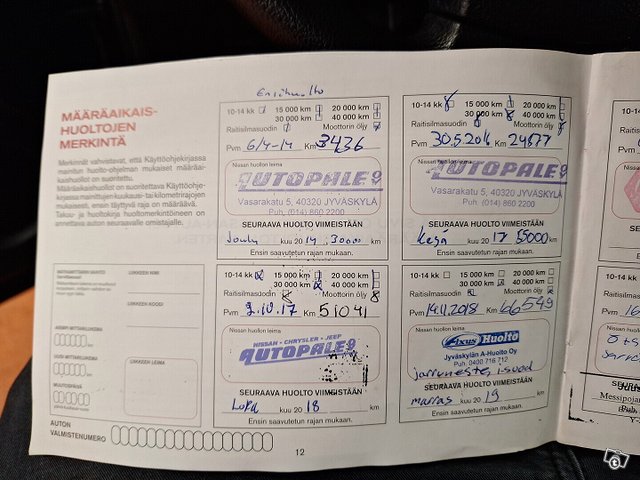 MÄÄRÄAIKAIS-
HUOLTOJEN
MERKINTÄ
Merkinnät vahvistavat, että Käyttöohjekirjassa
mainitun huolto-ohjelman mukaiset määräai-
kaishuollot on suoritettu.
Määräaikaishuollot on suoritettava Käyttöohje-
kirjassa mainittujen kuukausi- tai kilometrirajojen
mukaisesti, ensin täyttyvä raja on määräävä.
Takuu- ja huoltokirja huoltomerkintöineen on
annettava auton seuraavalle omistajalle.
Ensihuolto
10-14 kk 15 000 km 20 000 km
30 000 km 40 000 km
Raitisilmasuodin Moottorin öljy
Pvm Km 3436
Nissan huollon leima
AUTOPALE
Vasarakatu 5, 40320 JYVÄSKYLÄ
Puh. (014) 860 2200
SEURAAVA HUOLTO VIIMEISTÄÄN
Joulu kuu 2014, 30000 km
Ensin saavutetun rajan mukaan.
10-14 kk 15 000 km 20 000 km
30 000 km 40 000 km
Raitisilmasuodin Moottorin öljy
Pvm 30.5.2016 Km 24677
Nissan huollon leima
AUTOPALE
Vasarakatu 5, 40320 JYVÄSKYLÄ
Puh. (014) 860 2200
SEURAAVA HUOLTO VIIMEISTÄÄN
Kesä kuu 2017 55000 km
Ensin saavutetun rajan mukaan.
MITTARINVAIHTO
LIIKKEEN NIMI
LIIKKEEN KOODI
AIEMPI MITTARILUKEMA
UUSI MITTARILUKEMA
LIIKKEEN LEIMA
MUUTOSPÄIVÄ
AUTON
VALMISTENUMERO
10-14 kk 15 000 km 20 000 km
30 000 km 40 000 km
Raitisilmasuodin Moottorin öljy
Pvm 2.10.17 Km 51041
Nissan huollon leima
NISSAN - CHRYSLER - JEEP
AUTOPALE
SEURAAVA HUOLTO VIIMEISTÄÄN
Loka kuu 2018 km
Ensin saavutetun rajan mukaan.
10-14 kk 15 000 km 20 000 km
30 000 km 40 000 km
Raitisilmasuodin Moottorin öljy
Pvm 14.11.2018 Km 66549
Nissan huollon leima
Fixus Huolto
Jyväskylän A-Huolto Oy
Puh. 0400 716 712
jarruneste,
SEURAAVA HUOLTO VIIMEISTÄÄN
marras kuu 2019 km
Ensin saavutetun rajan mukaan.
12
10
Rait
Pvm
10-
Rait
Pvm 16
Nissan
SE
Messipojan
Puh.
Y-